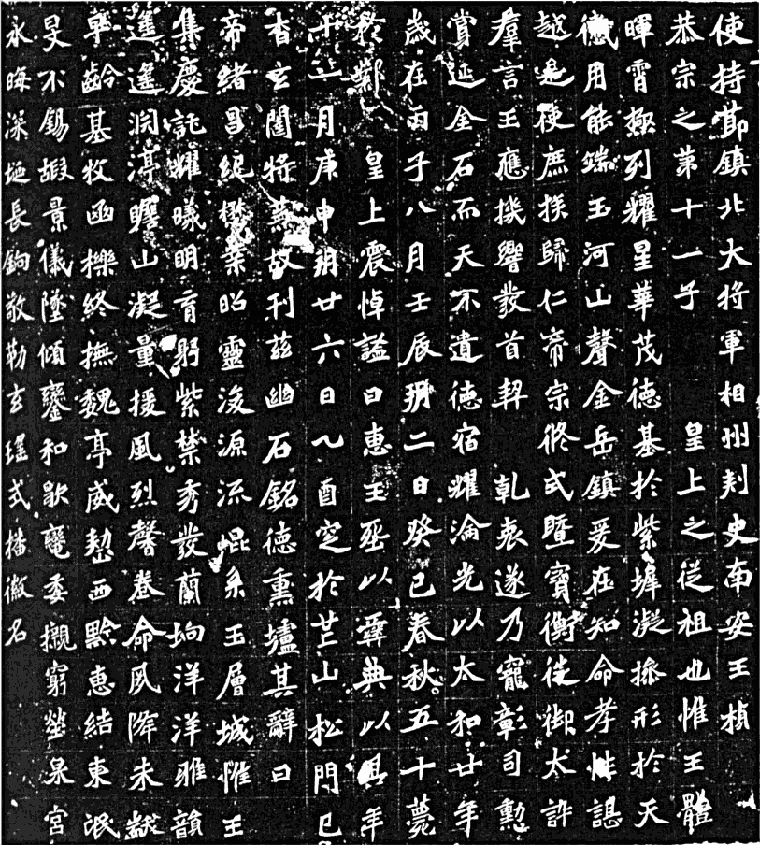 使持節鎮北大將軍相州刺史南安王楨
恭宗之第十一子皇上之從祖也惟王體
暉霄極列耀星華茂德基於紫墀凝操形於天
感用能端玉河山聲金岳鎮爰在知命孝性諶
越是使庶族歸仁帝宗攸式暨寶衡徙御太訐
羣言王應機響發首契乾衷遂乃寵彰司勳
賞延金石而天不遺德宿耀淪光以太和廿年
歲在丙子八月壬辰朔二日癸巳春秋五十薨
於鄴皇上震悼諡曰惠王葬以彝典以其年
十一月庚申朔廿六日乙酉窆於芒山松門已
杳玄闥將蕪故刊兹幽石銘德熏壚其辭曰
帝緒昌紀懋業昭靈浚源流崐系玉層城惟王
集慶託耀曦明育躬紫禁秀發蘭坰洋洋雅韻
遥遥淵渟瞻山凝量援風烈馨卷命夙降未黻
早齡基牧函櫟終撫魏亭威整西黔惠結東氓
旻不錫嘏景儀墜傾鑾和歇轡委櫬窮塋泉宮
永晦深埏長鈎敬勒玄瑤式播徽名